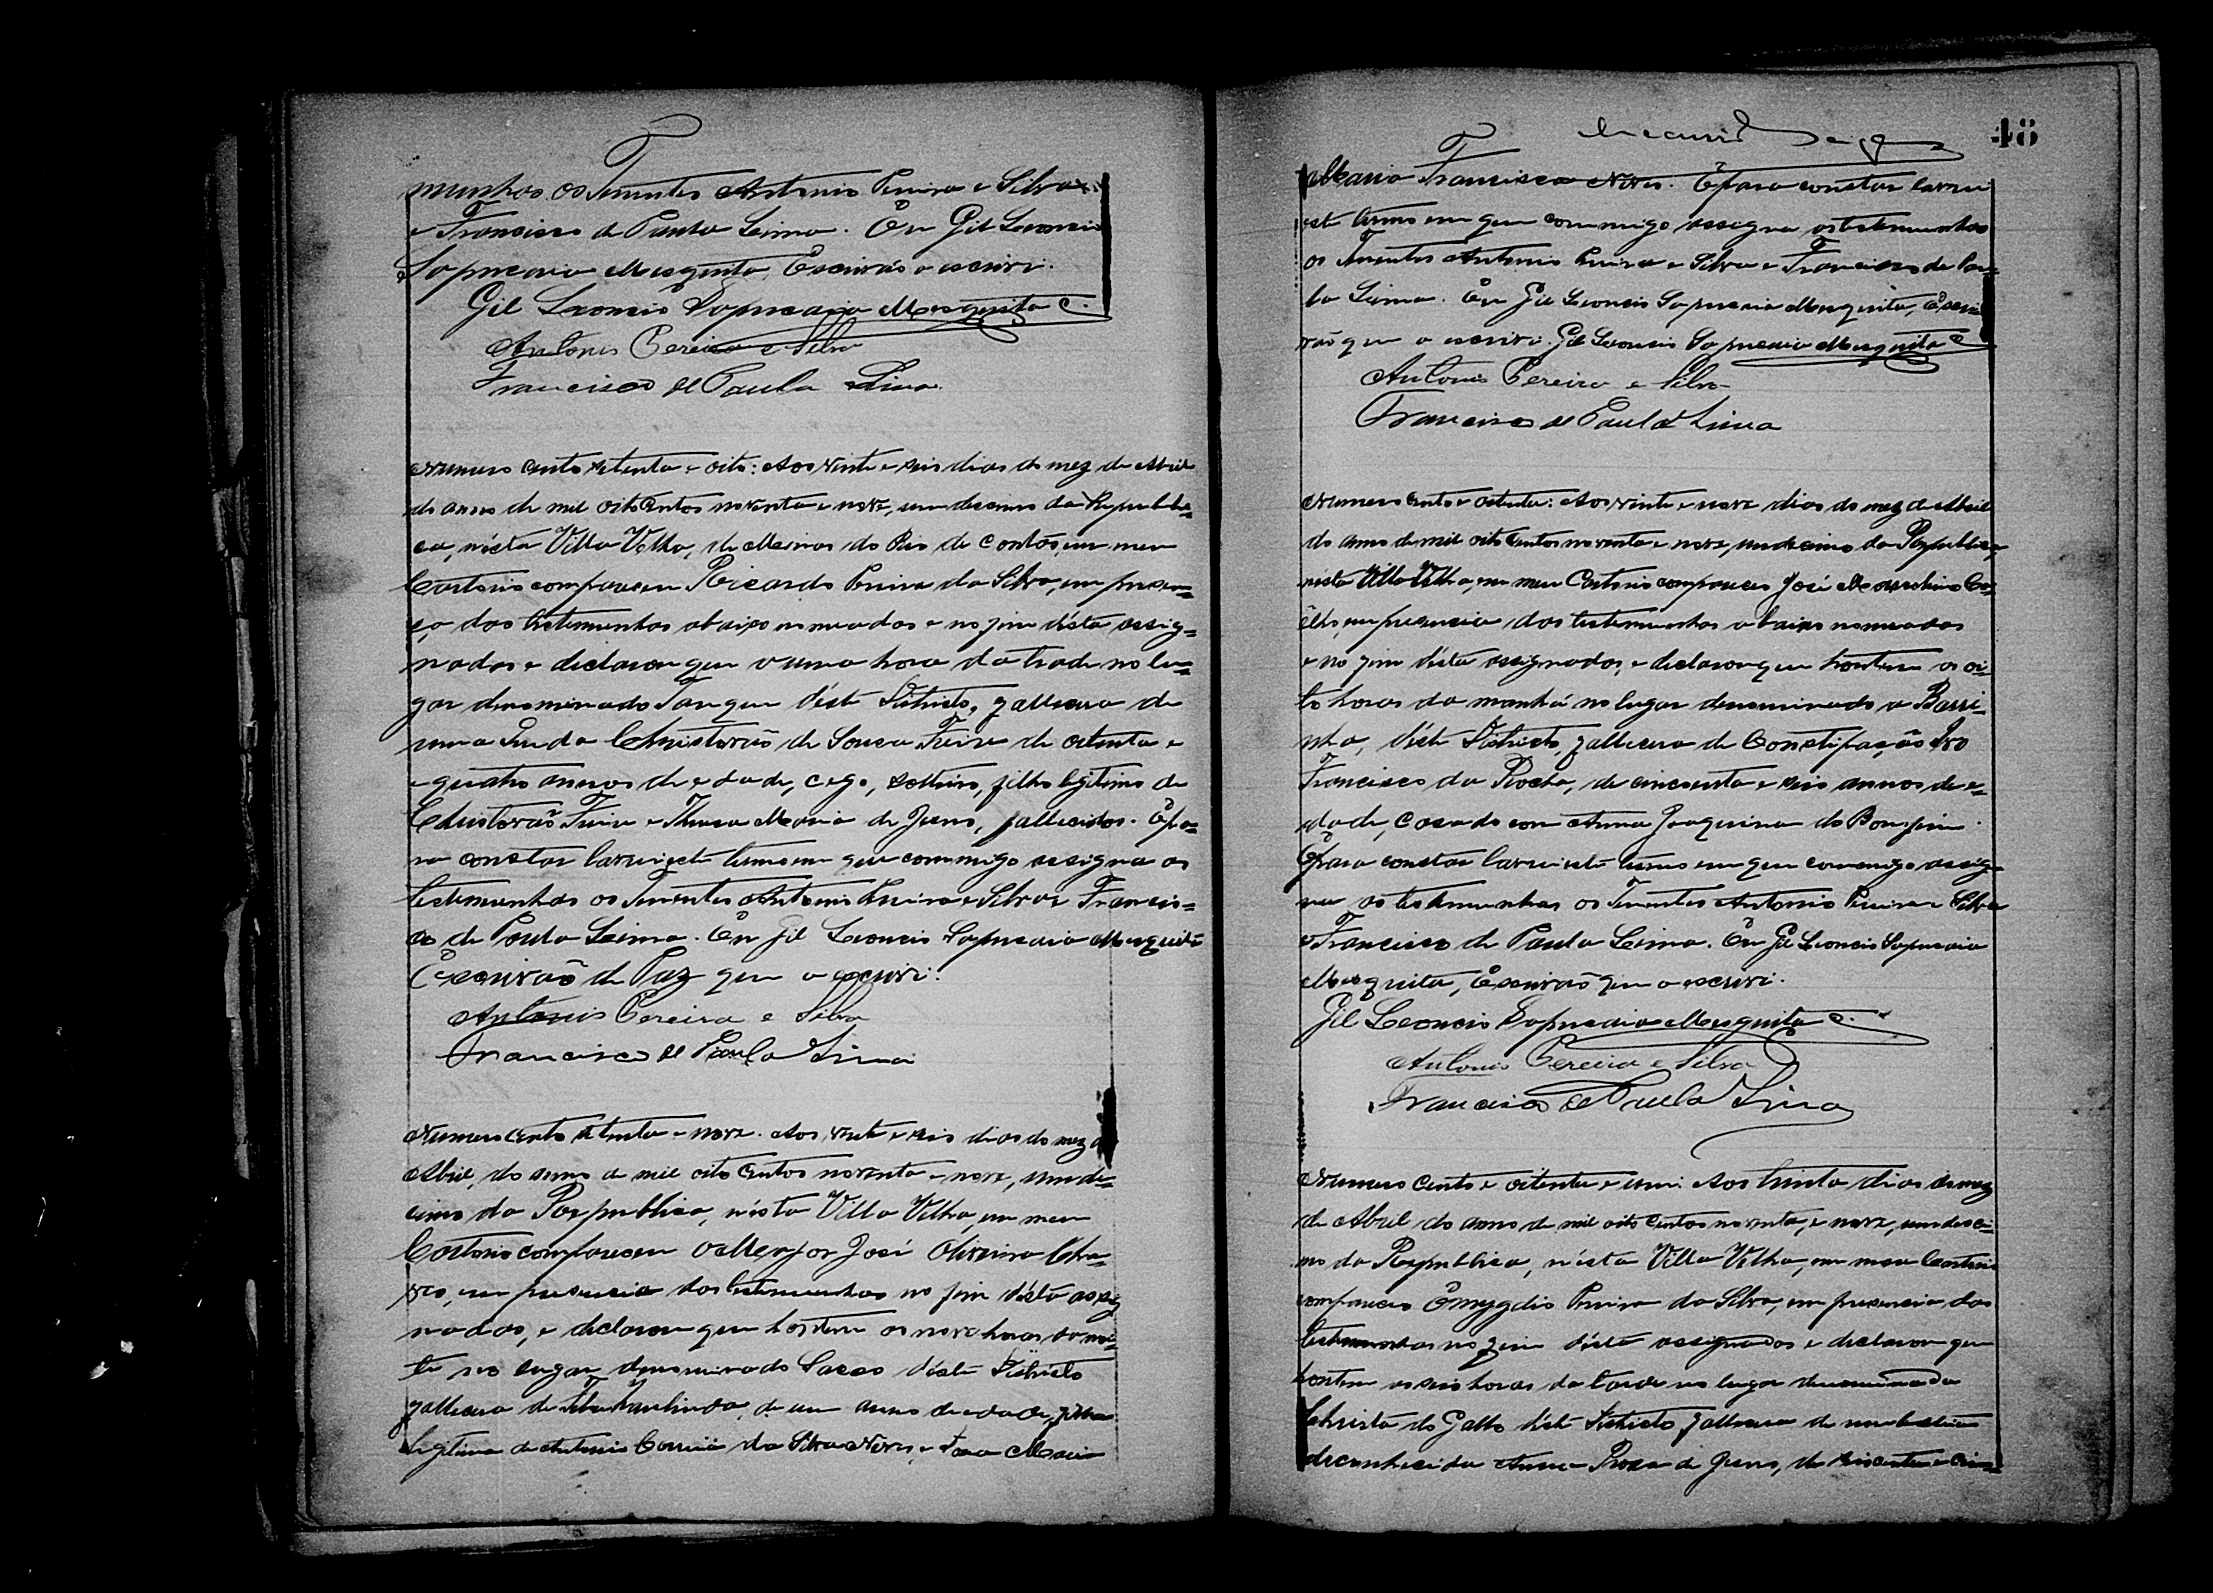 munhas os Tenentes Antonio Pereira e Silva
e Francisco de Paula Lima. Eu Gil Leoncio
Sapucaia Mesquita, Escrivão o escrivi.
Gil Leoncio Sapucaia Mesquita
Antonio Pereira e Silva
Francisco de Paula Lima.
Numero cento setenta e oito: Aos vinte e seis dias do mez de Abril
do anno de mil oito centos noventa e nove, undecimo da Republi=
ca, nésta Villa Velha, de Minas do Rio de Contas, em meu
Cartorio compareceu Ricardo Pereira da Silva, em presen=
ça das testemunhas abaixo nomeadas e no fim désta assig=
nadas e declarou que a uma hora da tarde no lu=
gar denominado Tanque déste Districto, falleceu de
uma Christovaõ de Souza Freire de oitenta e
e quatro annos de edade, cego, solteiro, filho legitimo de
Christovaõ Freire e Thereza Maria de Jesus, fallecidos. E pa=
ra constar lavrei este termo em que commigo assigna as
testemunhas os Tenentes Antonio Pereira e Silva e Francis=
co de Paula Lima. Eu Gil Leoncio Sapucaia Mesquita
Escrivaõ de Paz que o escrivi.
Antonio Pereira e Silva
Francisco de Paula Lima
Numero cento setenta e nove. Aos vinte e seis dias do mez de
Abril, do anno de mil oito centos noventa e nove, unde=
cimo da Republica, nésta Villa Velha, em meu
Cartorio compareceu o Major José Oliveira
em presencia das testemunhas no fim désta assig
nadas, e declarou que hontem as nove horas da noi=
te no lugar denominado Sacco déste Districto
falleceu de de um anno de edade, filha
legitima de Antonio Correia da Silva Neves, e Maria
48
Maria Francisca Neves. E para constar lavrei
este termo em que commigo assigna as testemunhas
os Tenentes Antonio Pereira e Silva e Francisco de Pau=
la Lima. Eu Gil Leoncio Sapucaia Mesquita, Escri=
vaõ que o escrivi. Gil Leoncio Sapucaia Mesquita
Antonio Pereira e Silva
Francisco de Paula Lima
Numero cento e oitenta: Aos vinte e nove dias do mez de Abril
do anno de mil oito centos noventa e nove, undecimo da Republica,
nésta Villa Velha, em meu Cartorio compareceu José Marcolino Co=
êlho, em presencia das testemunhas abaixo nomeadas
e no fim désta assignadas, e declarou que hontem as oi=
to horas da manhã no lugar denominado a Barri=
nha, déste Districto, falleceu de Constipação Ivo
Francisco da Rocha, de cincoenta e seis annos de e=
dade, Casado com Anna Joaquina do Bomfim.
E para constar lavrei este termo em que commigo assig=
na as testemunhas os Tenentes Antonio Pereira e Silva
e Francisco de Paula Lima. Eu Gil Leoncio Sapucaia
Mesquita, Escrivaõ que o escrivi.
Gil Leoncio Sapucaia Mesquita
Antonio Pereira e Silva
Francisco de Paula Lima
Numero cento e oitenta e um: Aos trinta dias do mez
de Abril do anno de mil oito centos noventa, e nove, undeci=
mo da Republica, nésta Villa Velha, em meu Cartorio
compareceu Emygdio Pereira da Silva, em presencia das
testemunhas no fim désta assignadas e declarou que
hontem as seis horas da tarde no lugar denominado
Christa do Gallo déste Districto, falleceu de molestia
desconhecida Anna Roza de Jesus, de